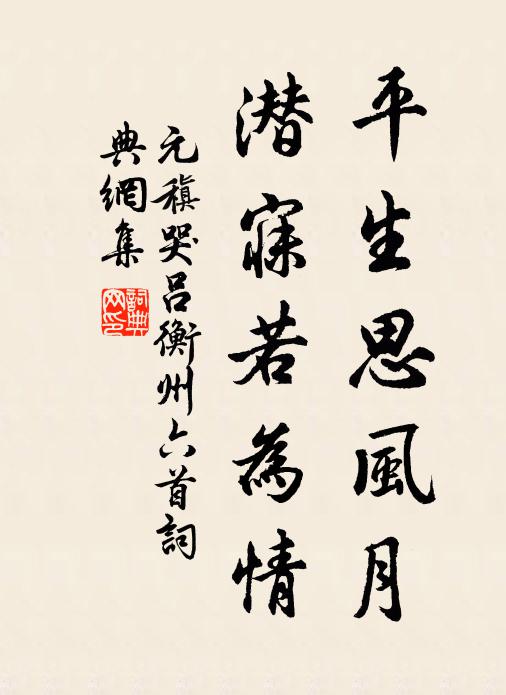 平生思風月
潛寐若為情
元稹哭呂衡州六首詞
典網集
詞典網印